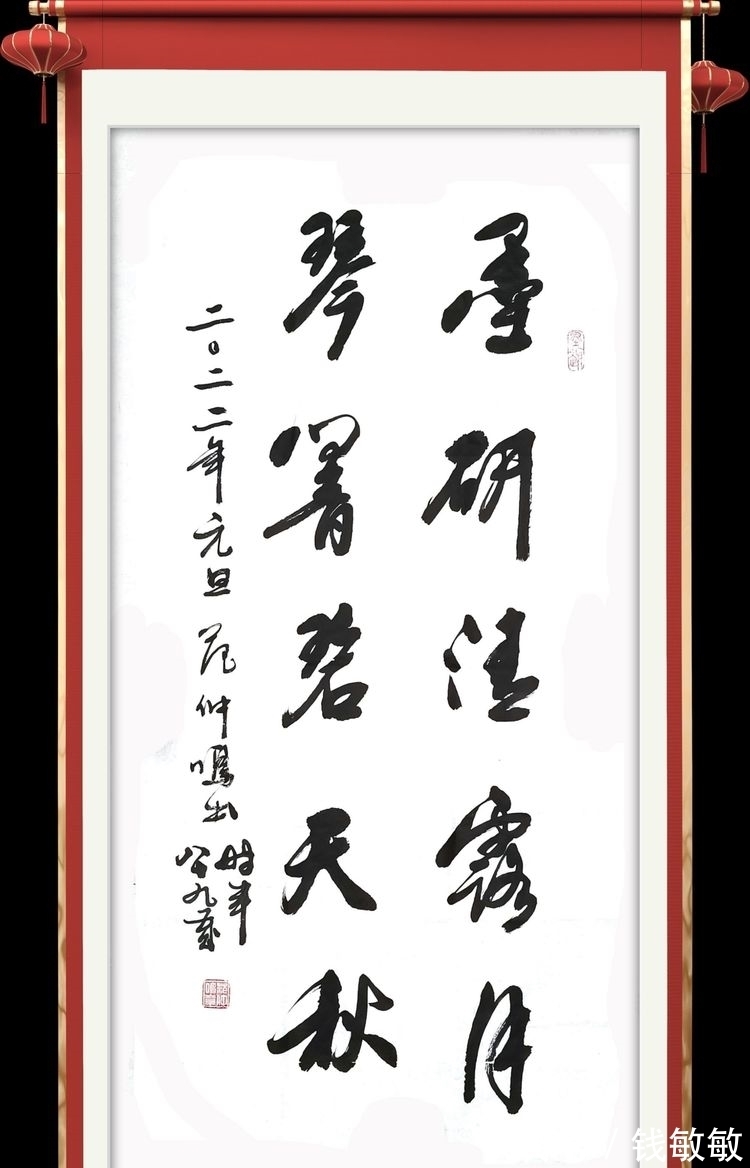 墨研清露月
琴響碧天秋
二〇二二年元旦范仲鳴书
时年
八十九歲
钱敏敏